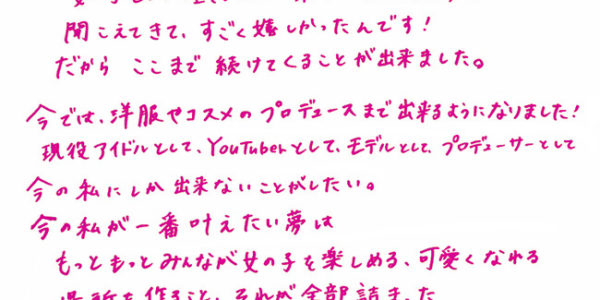 聞こえてきて、すごく嬉しかったんです！
だから ここまで 続けてくることが出来ました。
今では、洋服やコスメのプロデュースまで出来るようになりました！
現役アイドルとして、YouTuberとして、モデルとして、プロデューサーとして
今の私にしか出来ないことがしたい。
今の私が一番叶えたい夢は
もっともっとみんなが女の子を楽しめる、可愛くなれる
場所を作ること、それが全部詰まった